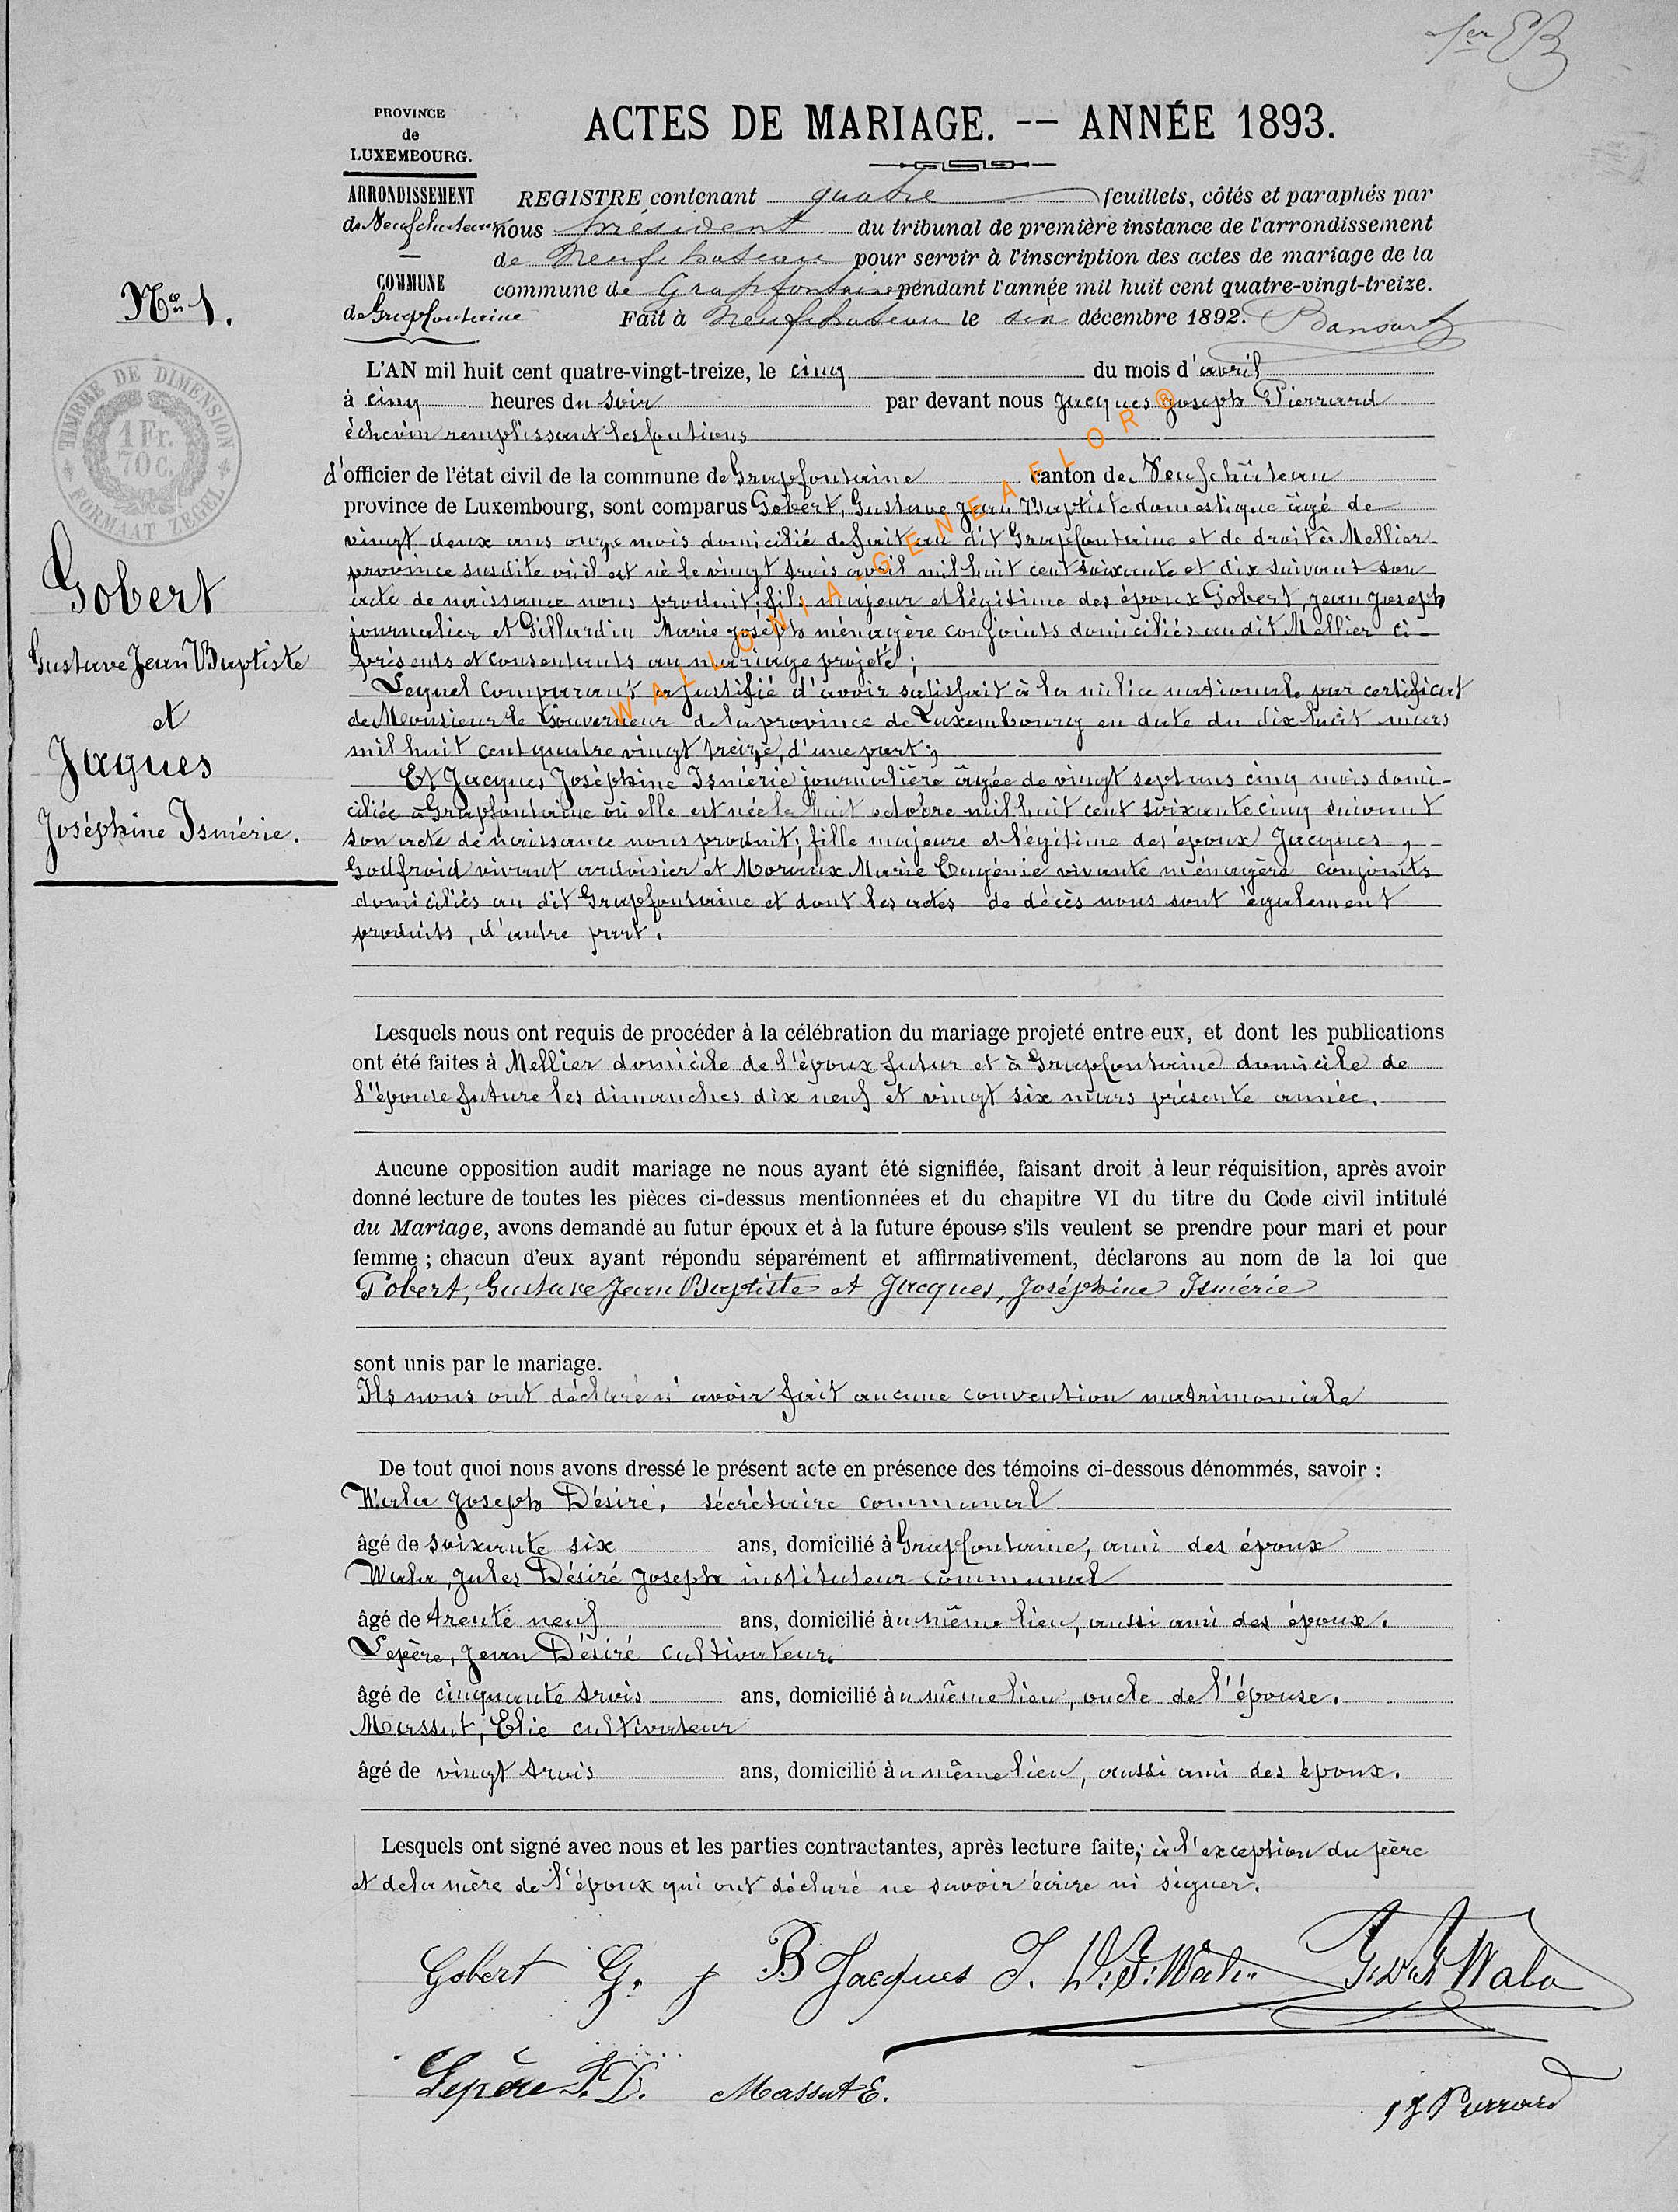 1er
PROVINCE
de
LUXEMBOURG.
ACTES DE MARIAGE. -- ANNÉE 1893.
ARRONDISSEMENT
de Neufchateau
COMMUNE
de Grapfontaine
REGISTRE contenant quatre feuillets, côtés et paraphés par
nous président du tribunal de première instance de l'arrondissement
de Neufchateau pour servir à l'inscription des actes de mariage de la
commune de Grapfontaine pendant l'année mil huit cent quatre-vingt-treize.
Fait à Neufchateau le six décembre 1892.
No 1.
TIMBRE DE DIMENSION
1 Fr.
70 C.
FORMAAT ZEGEL
Gobert
Gustave Jean Baptiste
et
Jaques
Joséphine Ismérie.
L'AN mil huit cent quatre-vingt-treize, le cinq du mois d'avril
à cinq heures du soir par devant nous Jacques Joseph Pierrard
échevin remplissant les fontions
d'officier de l'état civil de la commune de Grapfontaine canton de Neufchâteau
province de Luxembourg, sont comparus Gobert, Gustave Jean Baptiste domestique âgé de
vingt deux ans onze mois domicilié de fait au dit Grapfontaine et de droit à Mellier
province susdite où il est né le vingt trois avril mil huit cent soixante et dix suivant son
acte de naissance nous produit; fils majeur et légitime des époux Gobert, Jean Joseph
journalier et Gillardin Marie Joseph ménagère conjoints domiciliés au dit Mellier ci-
présents et consentants au mariage projeté;
Lequel comparant a justifié d'avoir satisfait à la milice nationale par certificat
de Monsieur le Gouverneur de la province de Luxembourg en date du dix huit mars
mil huit cent quatre vingt treize, d'une part;
Et Jacques Joséphine Ismérie journalière âgée de vingt sept ans cinq mois domi-
ciliée à Grapfontaine où elle est née le huit octobre mil huit cent soixante cinq suivant
son acte de naissance nous produit; fille majeure et légitime des époux Jacques,
Godfroid vivant ardoisier et Moraux Marie Eugénie vivante ménagère conjoints
domiciliés au dit Grapfontaine et dont les actes de décès nous sont également
produits, d'autre part.
WALLONIA-GENEAFLOR®
Lesquels nous ont requis de procéder à la célébration du mariage projeté entre eux, et dont les publications
ont été faites à Mellier domicile de l'époux futur et à Grapfontaine domicile de
l'épouse future les dimanches dix neuf et vingt six mars présente année.
Aucune opposition audit mariage ne nous ayant été signifiée, faisant droit à leur réquisition, après avoir
donné lecture de toutes les pièces ci-dessus mentionnées et du chapitre VI du titre du Code civil intitulé
du Mariage, avons demandé au futur époux et à la future épouse s'ils veulent se prendre pour mari et pour
femme ; chacun d'eux ayant répondu séparément et affirmativement, déclarons au nom de la loi que
Gobert, Gustave Jean Baptiste et Jacques, Joséphine Ismérie
sont unis par le mariage.
Ils nous ont déclaré n'avoir fait aucune convention matrimoniale
De tout quoi nous avons dressé le présent acte en présence des témoins ci-dessous dénommés, savoir :
Wala Joseph Désiré, sécrétaire communal
âgé de soixante six ans, domicilié à Grapfontaine, ami des époux
Wala, Jules Désiré Joseph instituteur communal
âgé de trente neuf ans, domicilié au même lieu, aussi ami des époux.
Lepère, Jean Désiré cultivateur.
âgé de cinquante trois ans, domicilié au même lieu, oncle de l'épouse.
Massut, Elie cultivateur
âgé de vingt trois ans, domicilié au même lieu, aussi ami des époux.
Lesquels ont signé avec nous et les parties contractantes, après lecture faite; à l'exception du père
et de la mère de l'époux qui ont déclaré ne savoir écrire ni signer.
Gobert G. J B Jacques J. Wala
Lepère J. D. Massut E. J J Pierrard